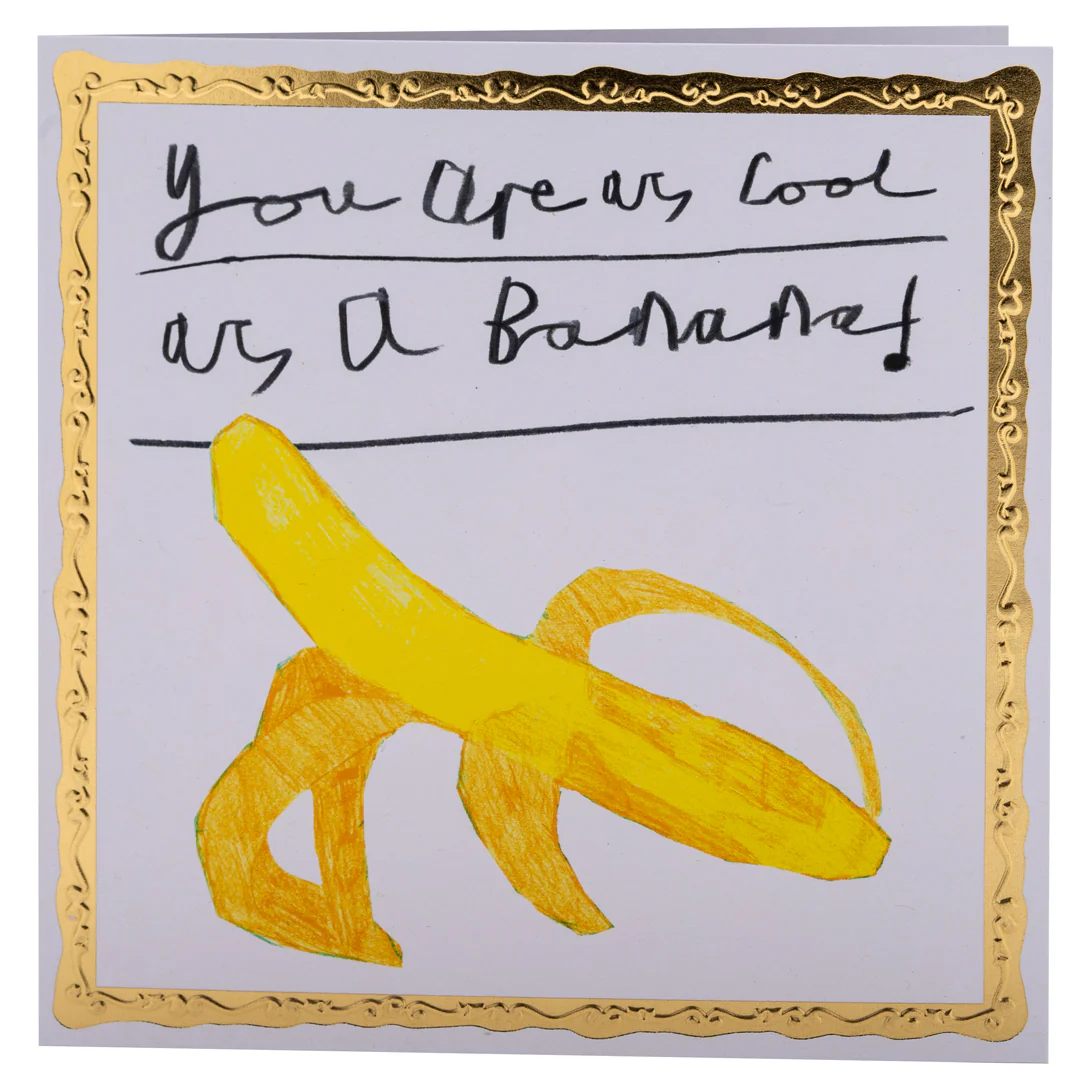 You are as Cool
as A Banana!